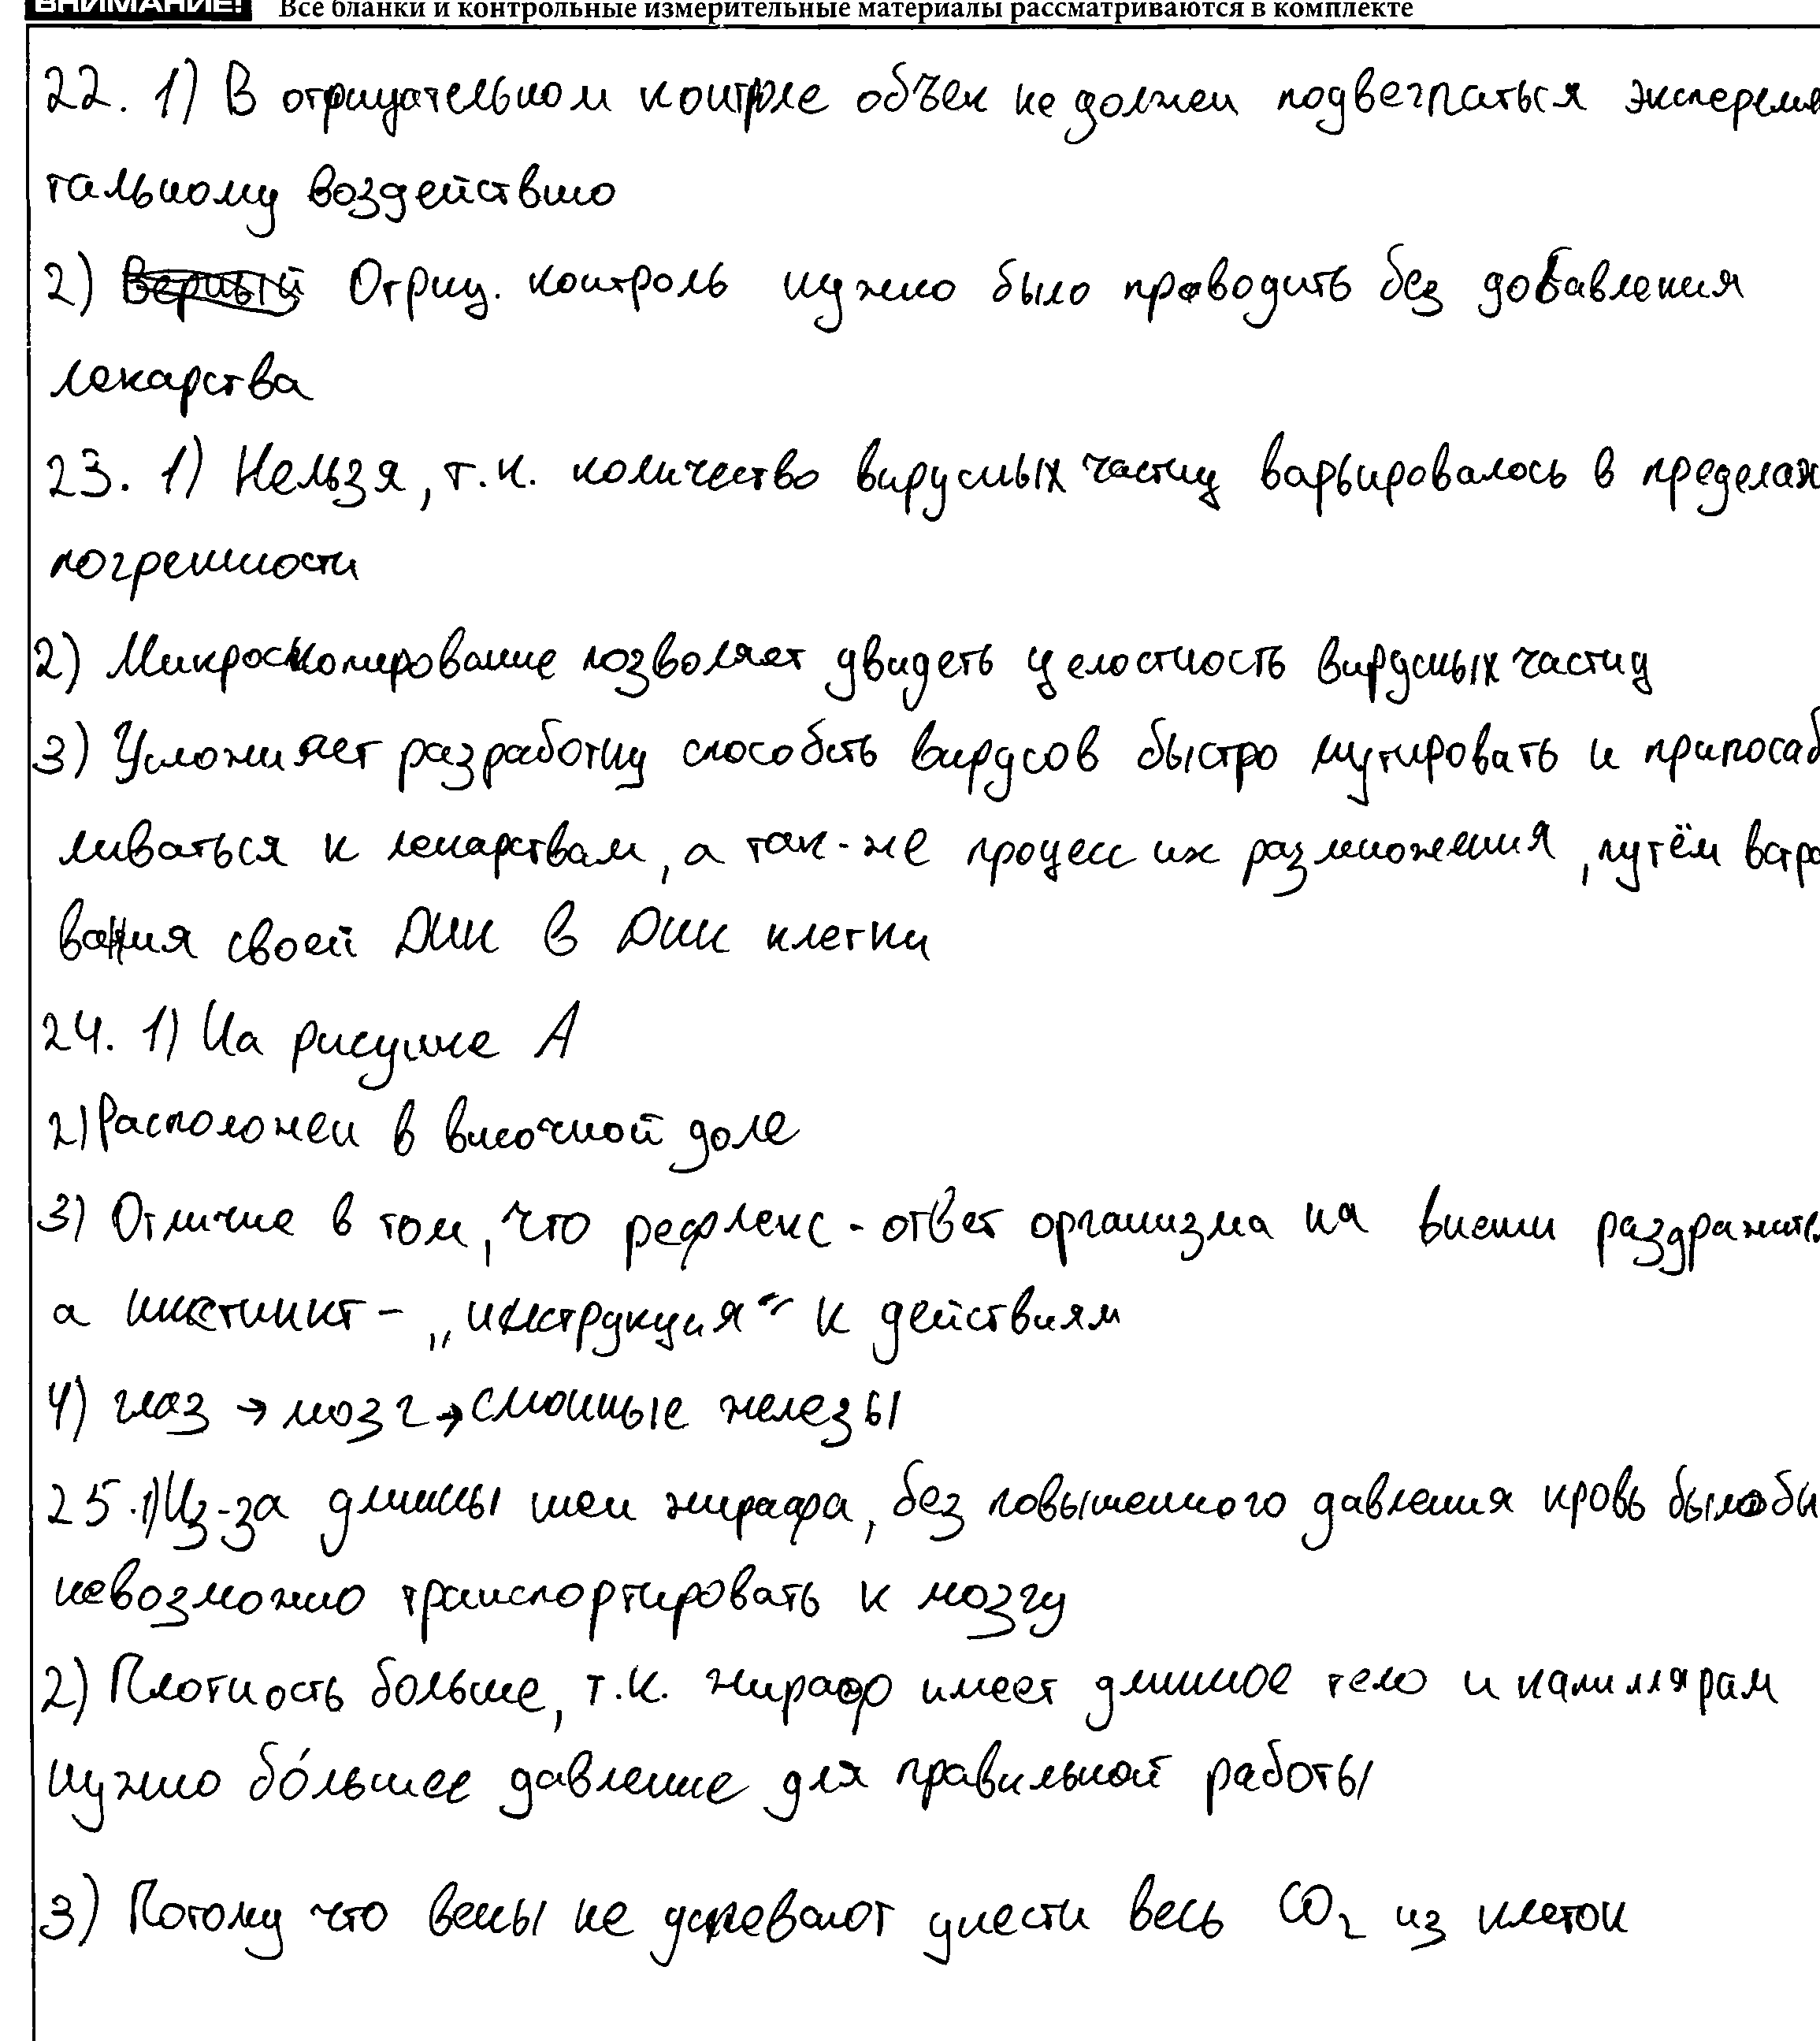 ВНИМАНИЕ! Все бланки и контрольные измерительные материалы рассматриваются в комплекте
22. 1) В отрицательном контроле объек не должен подвергаться экспереме
тальному воздействию
2) Верный Отриц. контроль нужно было проводить без добавления
лекарства
23. 1) Нельзя, т.к. количество вирусных частиц варьировалось в пределах
погрешности
2) Микроскопирование позволяет увидеть целостность вирусных частиц
3) Усложняет разработку способсть вирусов быстро мутировать и припосаб
ливаться к лекарствам, а так-же процесс их размножения, путём встра
вания своей ДНК в ДНК клетки
24. 1) На рисунке А
2) Расположен в височной доле
3) Отличие в том, что рефлекс - ответ организма на внешн раздражител
а инстинкт - „инструкция“ к действиям
4) глаз → мозг → слюнные железы
25. 1) Из-за длинны шеи жирафа, без повышенного давления кровь было бы
невозможно транспортировать к мозгу
2) Плотность больше, т.к. жираф имеет длинное тело и капиллярам
нужно бо́льшее давление для правильной работы
3) Потому что вены не успевают унести весь CO2 из клеток